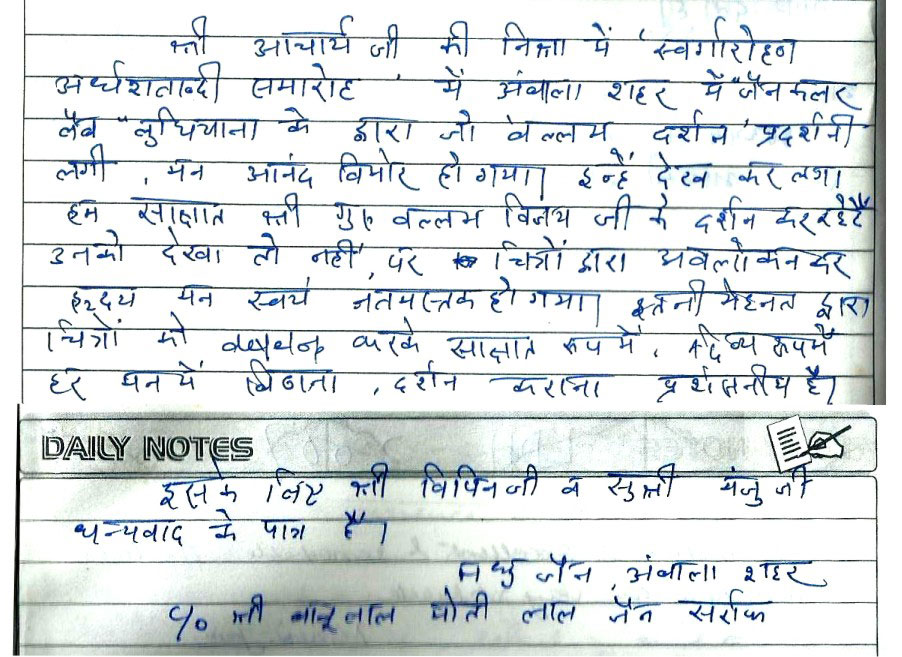 श्री आचार्य जी की निश्रा में 'स्वर्गारोहण
अर्धशताब्दी समारोह' में अंबाला शहर में "जैन कलर
लैब" लुधियाना के द्वारा जो 'वल्लभ दर्शन' प्रदर्शनी
लगी, मन आनंद विभोर हो गया। इन्हें देख कर लगा
हम साक्षात श्री गुरु वल्लभ विजय जी के दर्शन कर रहे हैं
उनको देखा तो नहीं, पर चित्रों द्वारा अवलोकन कर
हृदय मन स्वयं नतमस्तक हो गया। इतनी मेहनत द्वारा
चित्रों को करके साक्षात रूप में, दिव्य रूप में
हर मन में बिठाना, दर्शन कराना प्रशंसनीय है।
DAILY NOTES
इसके लिए श्री विपिन जी व सुश्री मंजु जी
धन्यवाद के पात्र हैं।
मधु जैन, अंबाला शहर
c/o श्री बाबूलाल मोती लाल जैन सर्राफ